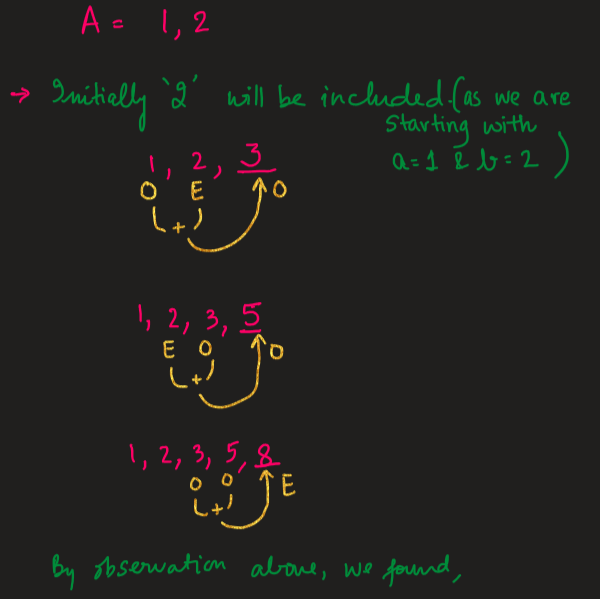 A = 1, 2
→ Initially '2' will be included. (as we are
starting with
a=1 & b=2)
1, 2, 3
O E O
+
1, 2, 3, 5
E O O
+
1, 2, 3, 5, 8
O O E
+
By observation above, we found,